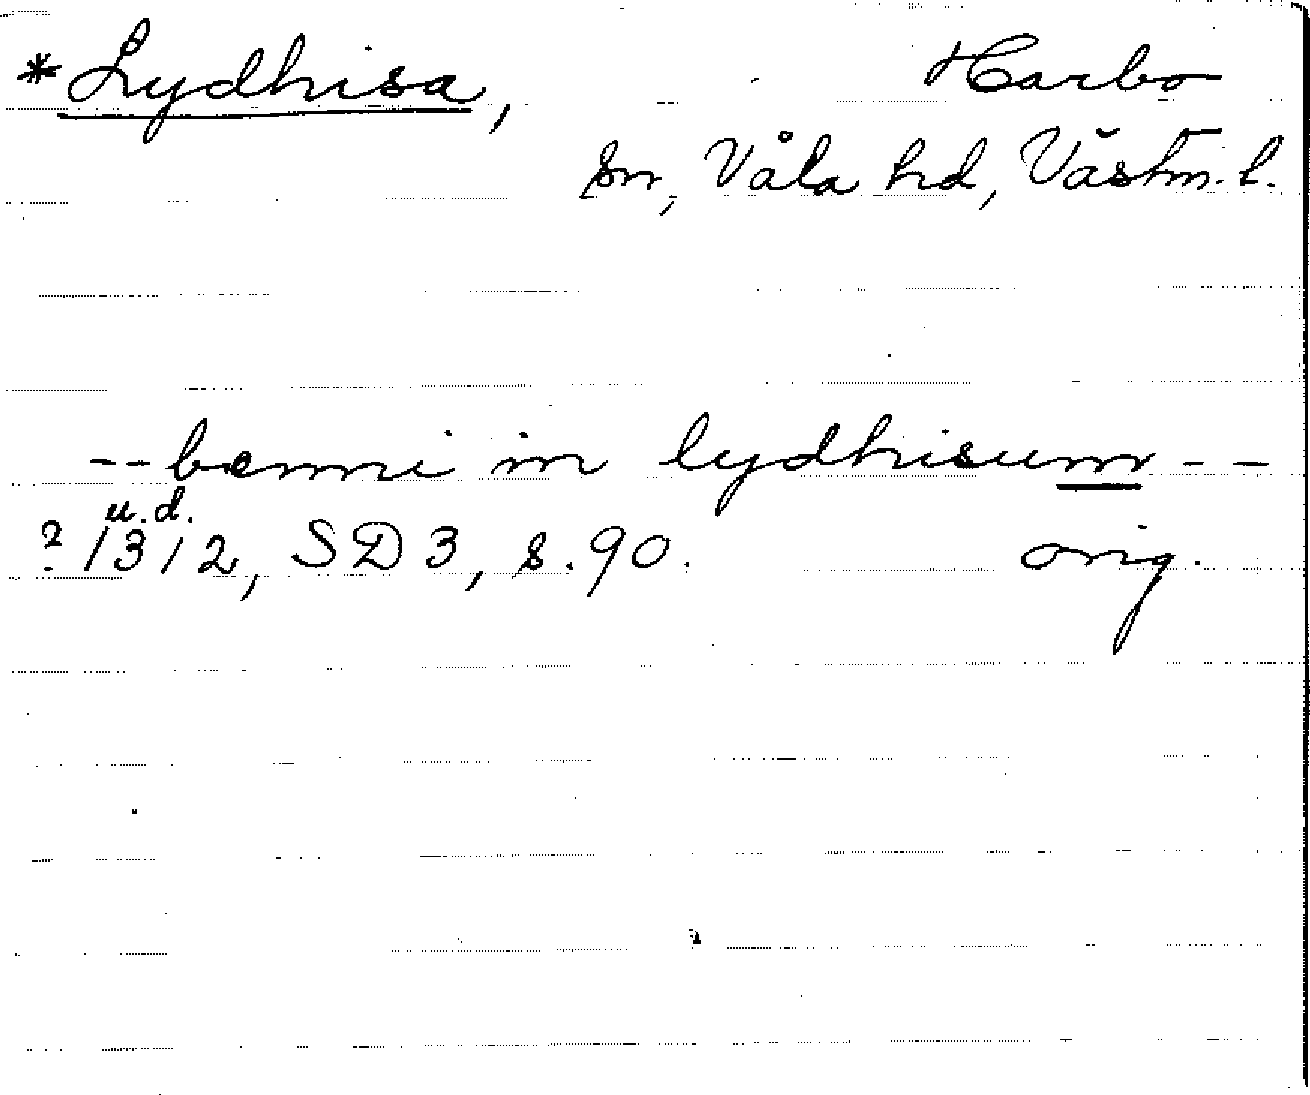 *Lydhisa, Harbo
sn, Våla hd, Västm. l.
-- benni in lydhisum --
u.d.
? 1312, SD 3, s. 90. orig.